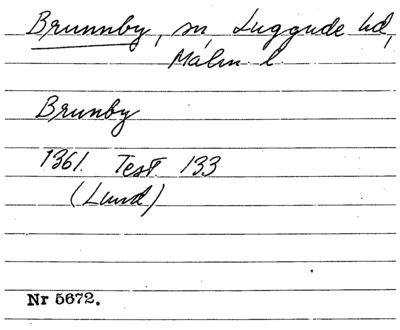 Brunnby, sn, Luggude hd,
Malm l.
Brunby
1361. Test. 133
(Lund)
Nr 5672.